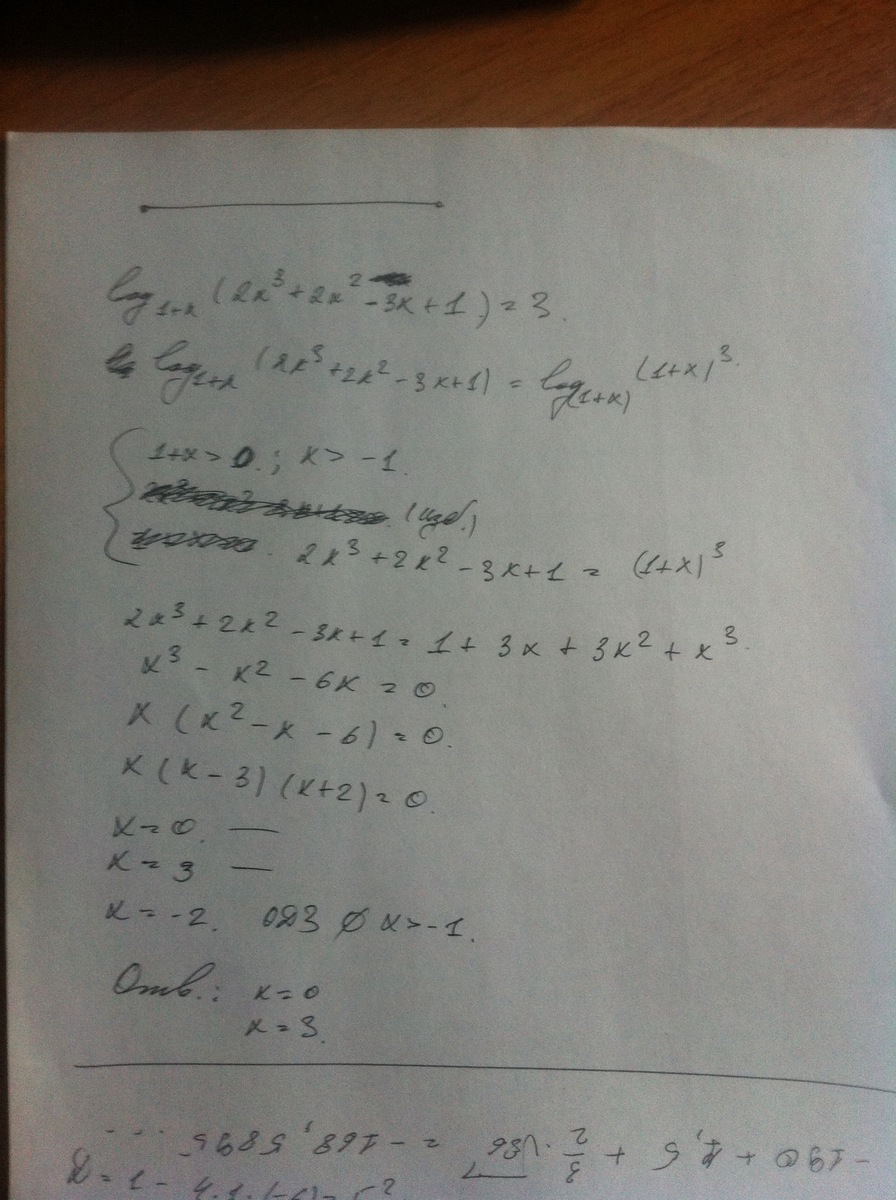 log₁₊ₓ (2x³ + 2x² - 3x + 1) = 3.
log₁₊ₓ (2x³ + 2x² - 3x + 1) = log₍₁₊ₓ₎ (1+x)³.
1+x > 0.; x > -1.
(изб.)
2x³ + 2x² - 3x + 1 = (1+x)³
2x³ + 2x² - 3x + 1 = 1 + 3x + 3x² + x³.
x³ - x² - 6x = 0.
x (x² - x - 6) = 0.
x (x - 3) (x + 2) = 0.
x = 0. —
x = 3 —
x = -2. ОДЗ ∅ x > -1.
Отв.: x = 0
x = 3.